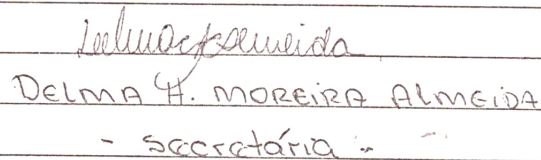 DELMA H. MOREIRA ALMEIDA
- secretária -